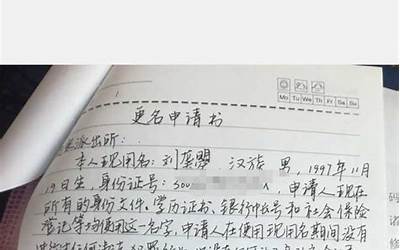 Mo Tu We Th Fr Sa Su
更名申请书
派出所:
本人现用名:刘 汉族 男,1997年11月
19日生,身份证号:500 ,申请人现在
所有的身份文件、学历证书、银行帐号和社会保险
登记等均使用这一名字,申请人在使用现用名期间没有